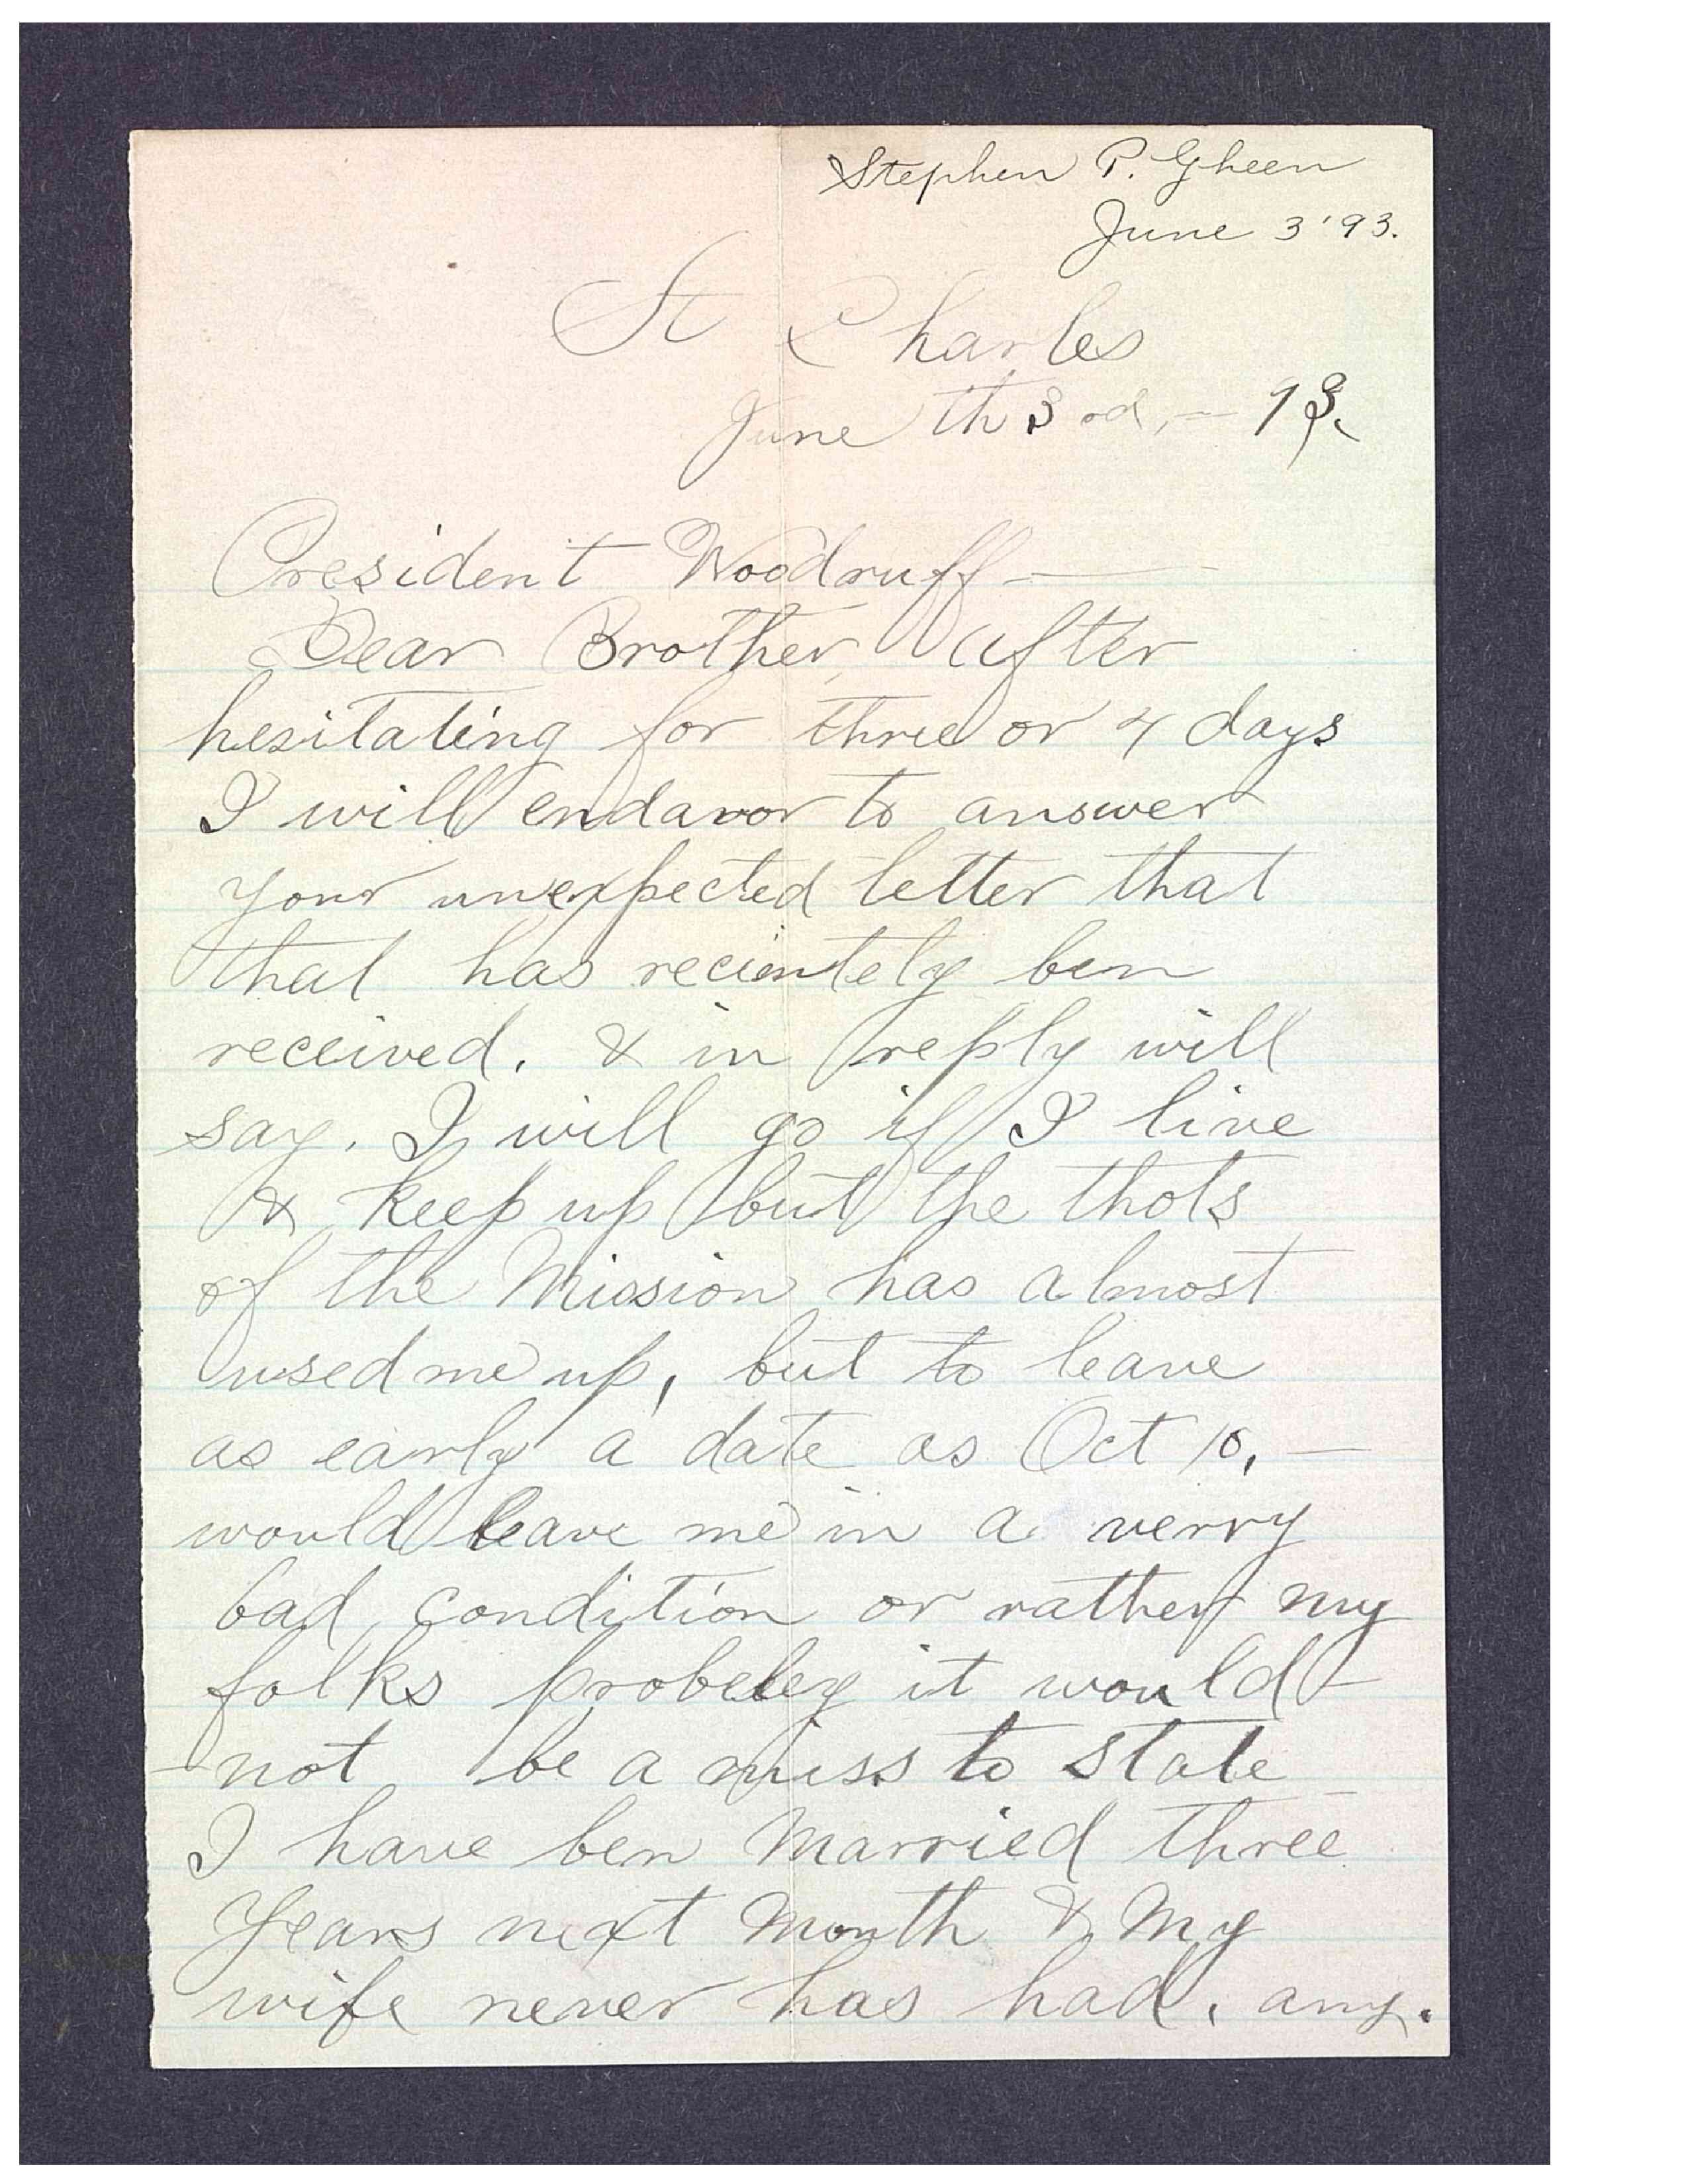 Stephen P. Gheen
June 3 '93.
St Charles
June th 3rd, - 93.
President Woodruff —
Dear Brother, after
hesitating for three or 4 days
I will endavor to answer
your unexpected letter that
that has recientely ben
received. & in reply will
say. I will go if I live
& keep up but the thots
of the Mission has almost
used me up, but to leave
as early a date as Oct 10, —
would leave me in a verry
bad condition or rather my
folks probeley it would -
not be a miss to state
I have ben Married three
Years next Month & My
wife never has had. any.